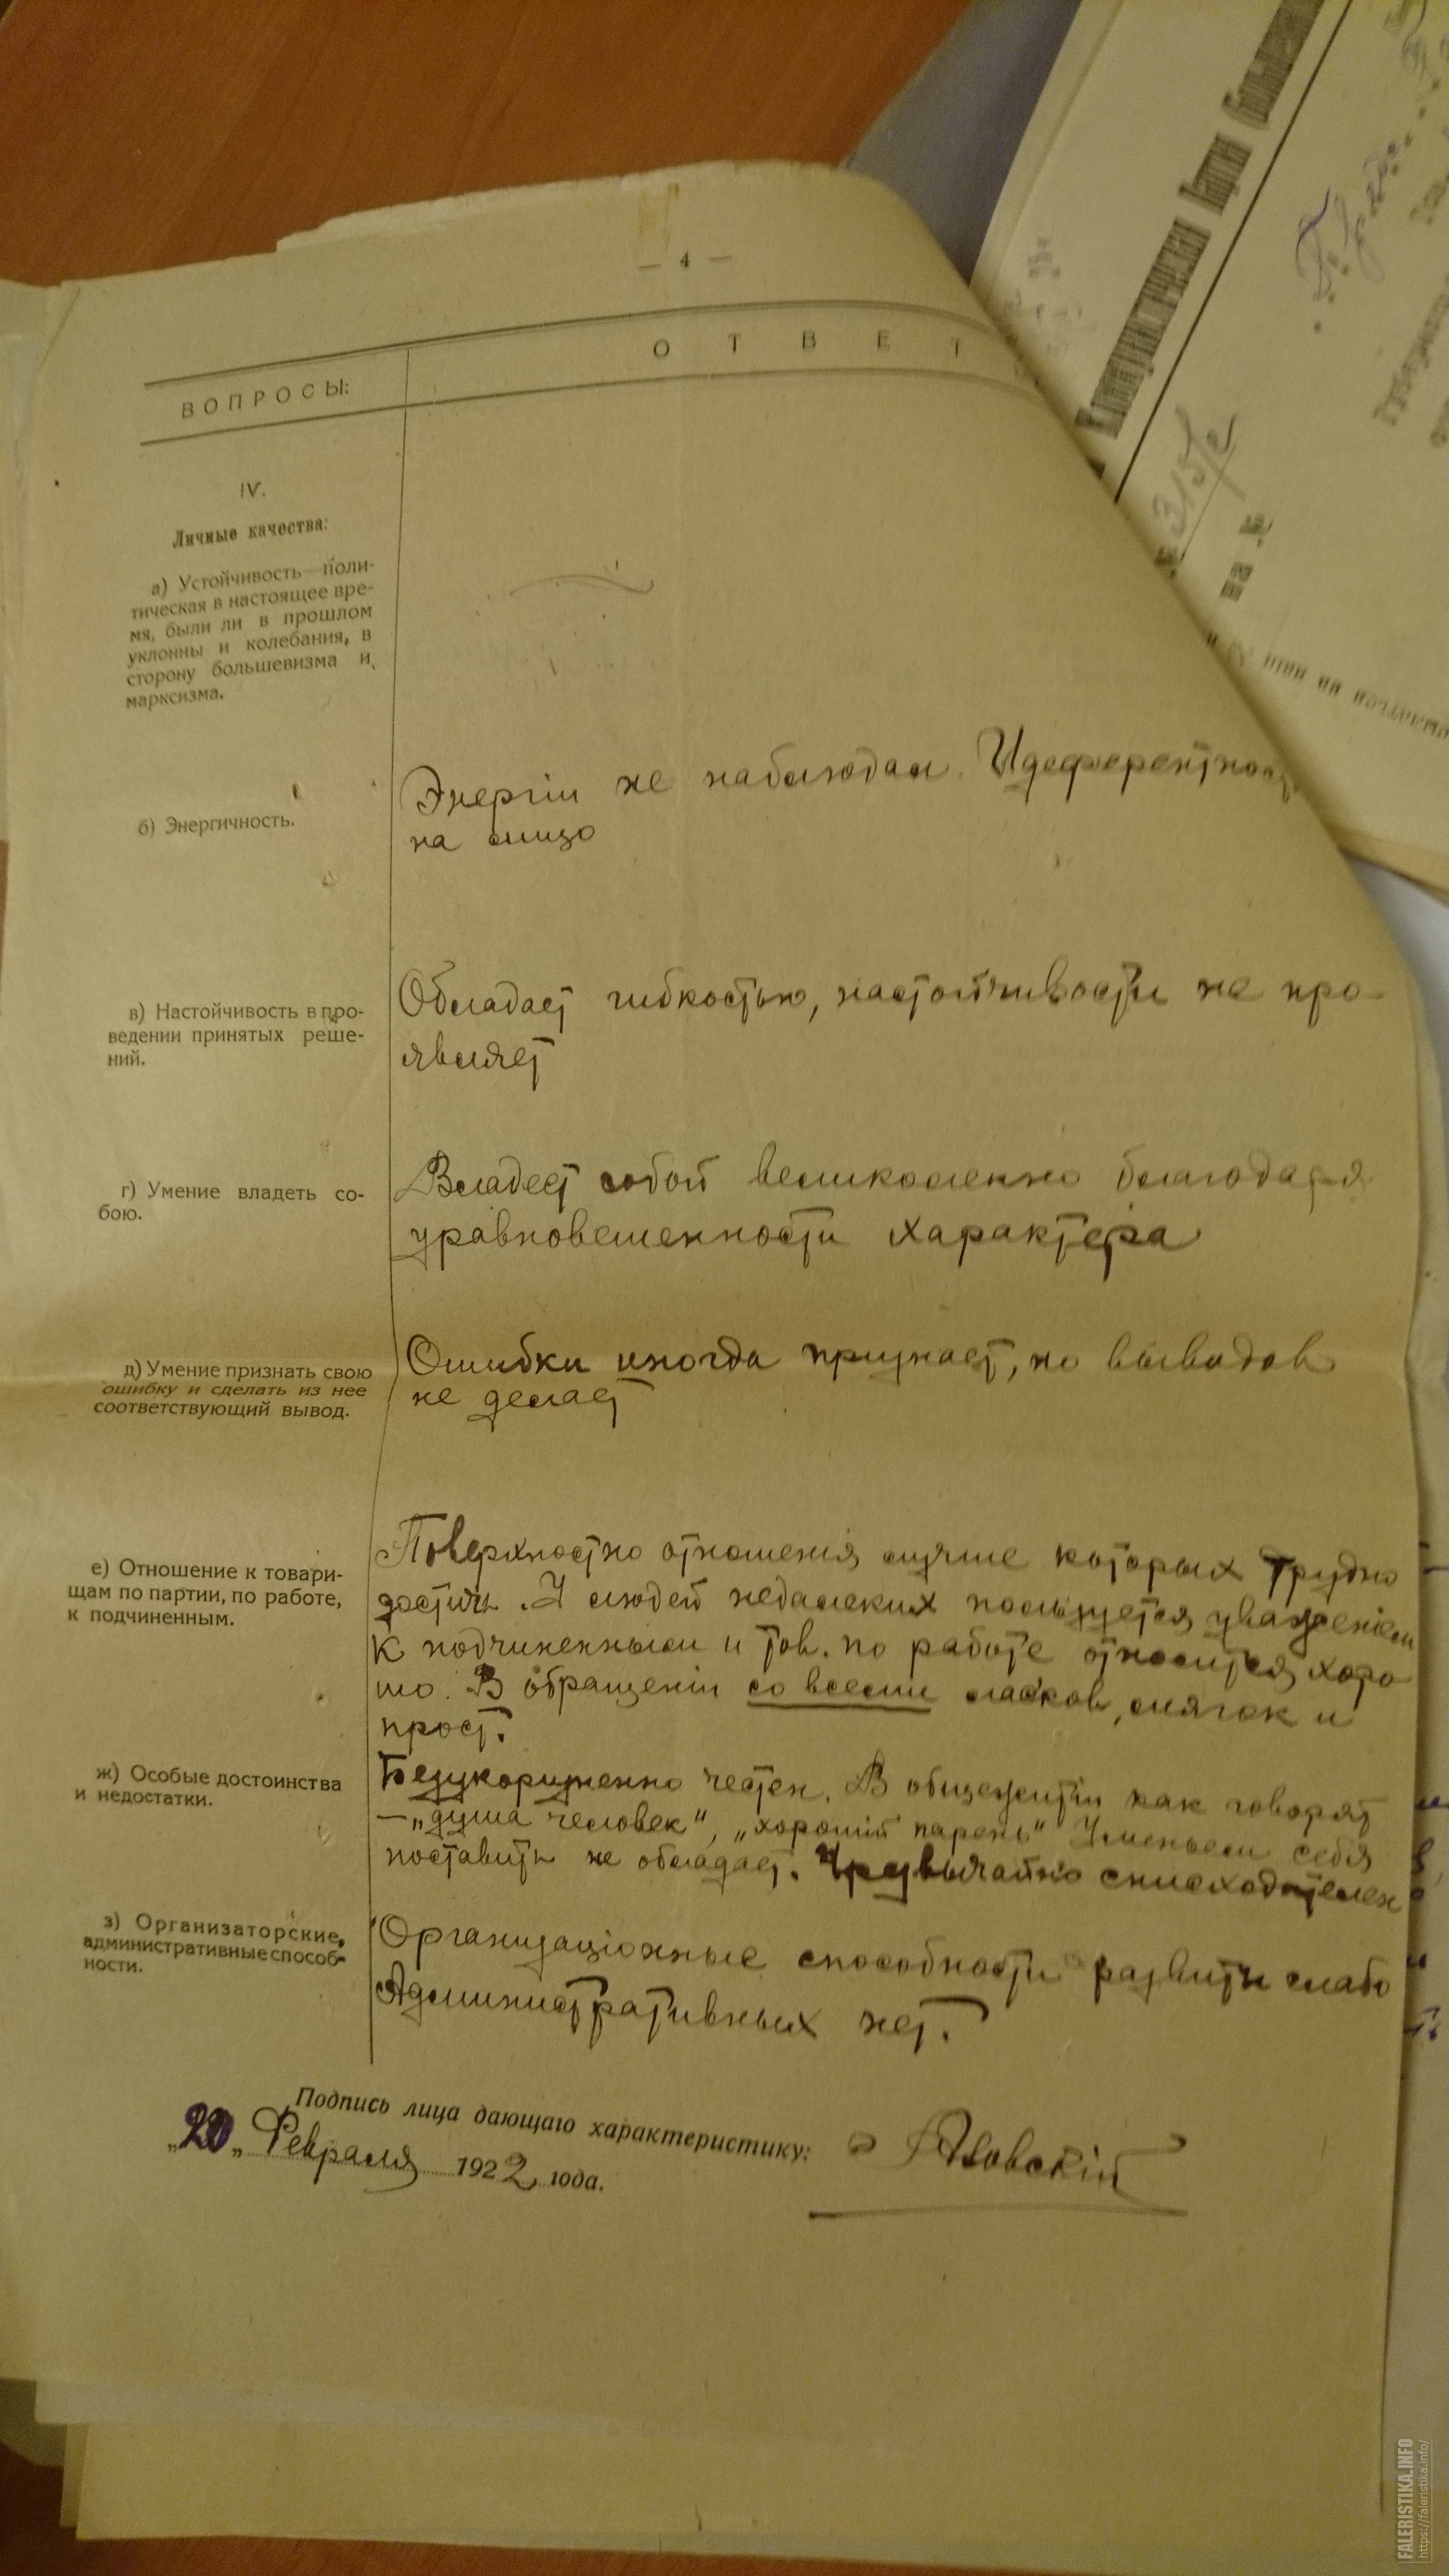 — 4 —
ВОПРОСЫ:
ОТВЕТ
IV.
Личные качества:
а) Устойчивость—поли-
тическая в настоящее вре-
мя, были ли в прошлом
уклонны и колебания, в
сторону большевизма и
марксизма.
б) Энергичность.
Энергіи не наблюдал. Идеферентно
на лицо
в) Настойчивость в про-
ведении принятых реше-
ний.
Обладает гибкостью, настойчивости не про-
являет
г) Умение владеть со-
бою.
Владеет собой великолепно благодаря
уравновешенности характера
д) Умение признать свою
ошибку и сделать из нее
соответствующий вывод.
Ошибки иногда признает, но выводов
не делает
е) Отношение к товари-
щам по партии, по работе,
к подчиненным.
Поверхностно отношения лучше которых трудно
достичь. У людей недалеких пользуется уважением
К подчиненным и тов. по работе относится хоро
шо. В обращеніи со всеми ласков, мягок и
прост.
ж) Особые достоинства
и недостатки.
Безукоризненно честен. В общежитіи как говорят
—„душа человек", „хорошій парень" Уменьем себя
поставить не обладает. Чрезвычайно снисходителен
з) Организаторские,
административные способ-
ности.
Организаціонные способности развиты слабо
Административных нет.
Подпись лица дающаго характеристику:
„20„ Февраля 1922 года.
Коммунистическая Партия
315/с
на №
FALERISTIKA.INFO
https://faleristika.info/